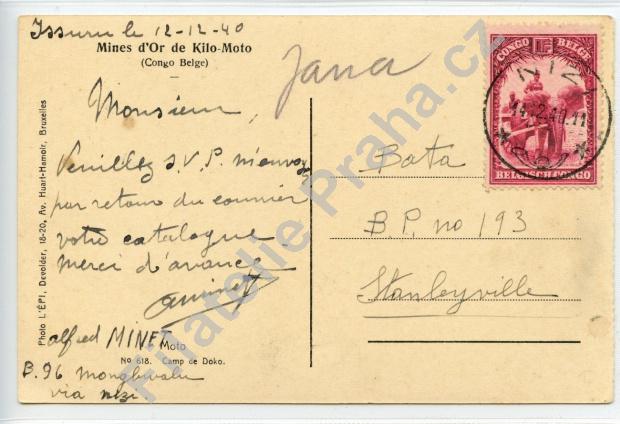 Issuru le 12-12-40
Mines d'Or de Kilo-Moto
(Congo Belge)
Jana
Monsieur,
Veuillez S.V.P. m'envoyer
par retour du courrier
votre catalogue
merci d'avance
aminet
alfred MINET
Moto
No 618. Camp de Doko.
B. 96 Monghwalu
via nizi
Photo L'ÉPI, Devolder, 18-20, Av. Huart-Hamoir, Bruxelles
CONGO BELGE
1F
BELGISCH CONGO
NIZI
Bata
B.P. no 193
Stanleyville
Filatelie Praha.cz